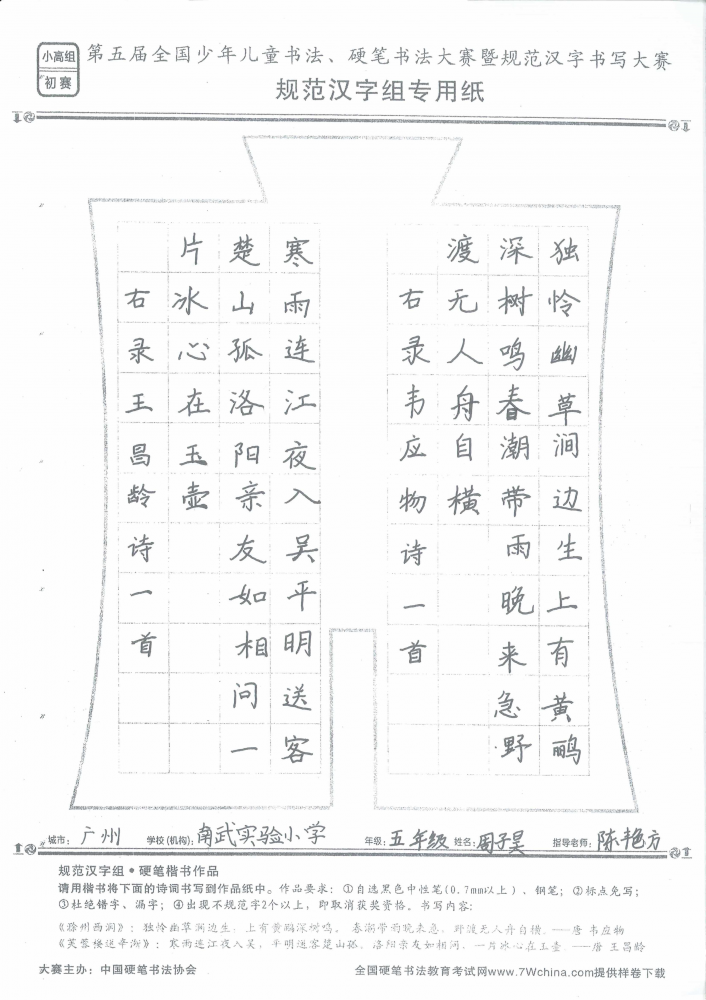 小高组
初赛
第五届全国少年儿童书法、硬笔书法大赛暨规范汉字书写大赛
规范汉字组专用纸
独怜幽草涧边生上有黄鹂
深树鸣春潮带雨晚来急野
渡无人舟自横
右录韦应物诗一首
寒雨连江夜入吴平明送客
楚山孤洛阳亲友如相问一
片冰心在玉壶
右录王昌龄诗一首
城市：广州 学校(机构)：南武实验小学 年级：五年级 姓名：周子昊 指导老师：陈艳方
规范汉字组•硬笔楷书作品
请用楷书将下面的诗词书写到作品纸中。作品要求：①自选黑色中性笔(0.7mm以上)、钢笔；②标点免写；
③杜绝错字、漏字；④出现不规范字2个以上，即取消获奖资格。书写内容：
《滁州西涧》：独怜幽草涧边生，上有黄鹂深树鸣。春潮带雨晚来急，野渡无人舟自横。——唐 韦应物
《芙蓉楼送辛渐》：寒雨连江夜入吴，平明送客楚山孤。洛阳亲友如相问，一片冰心在玉壶。——唐 王昌龄
大赛主办：中国硬笔书法协会 全国硬笔书法教育考试网www.7Wchina.com提供样卷下载